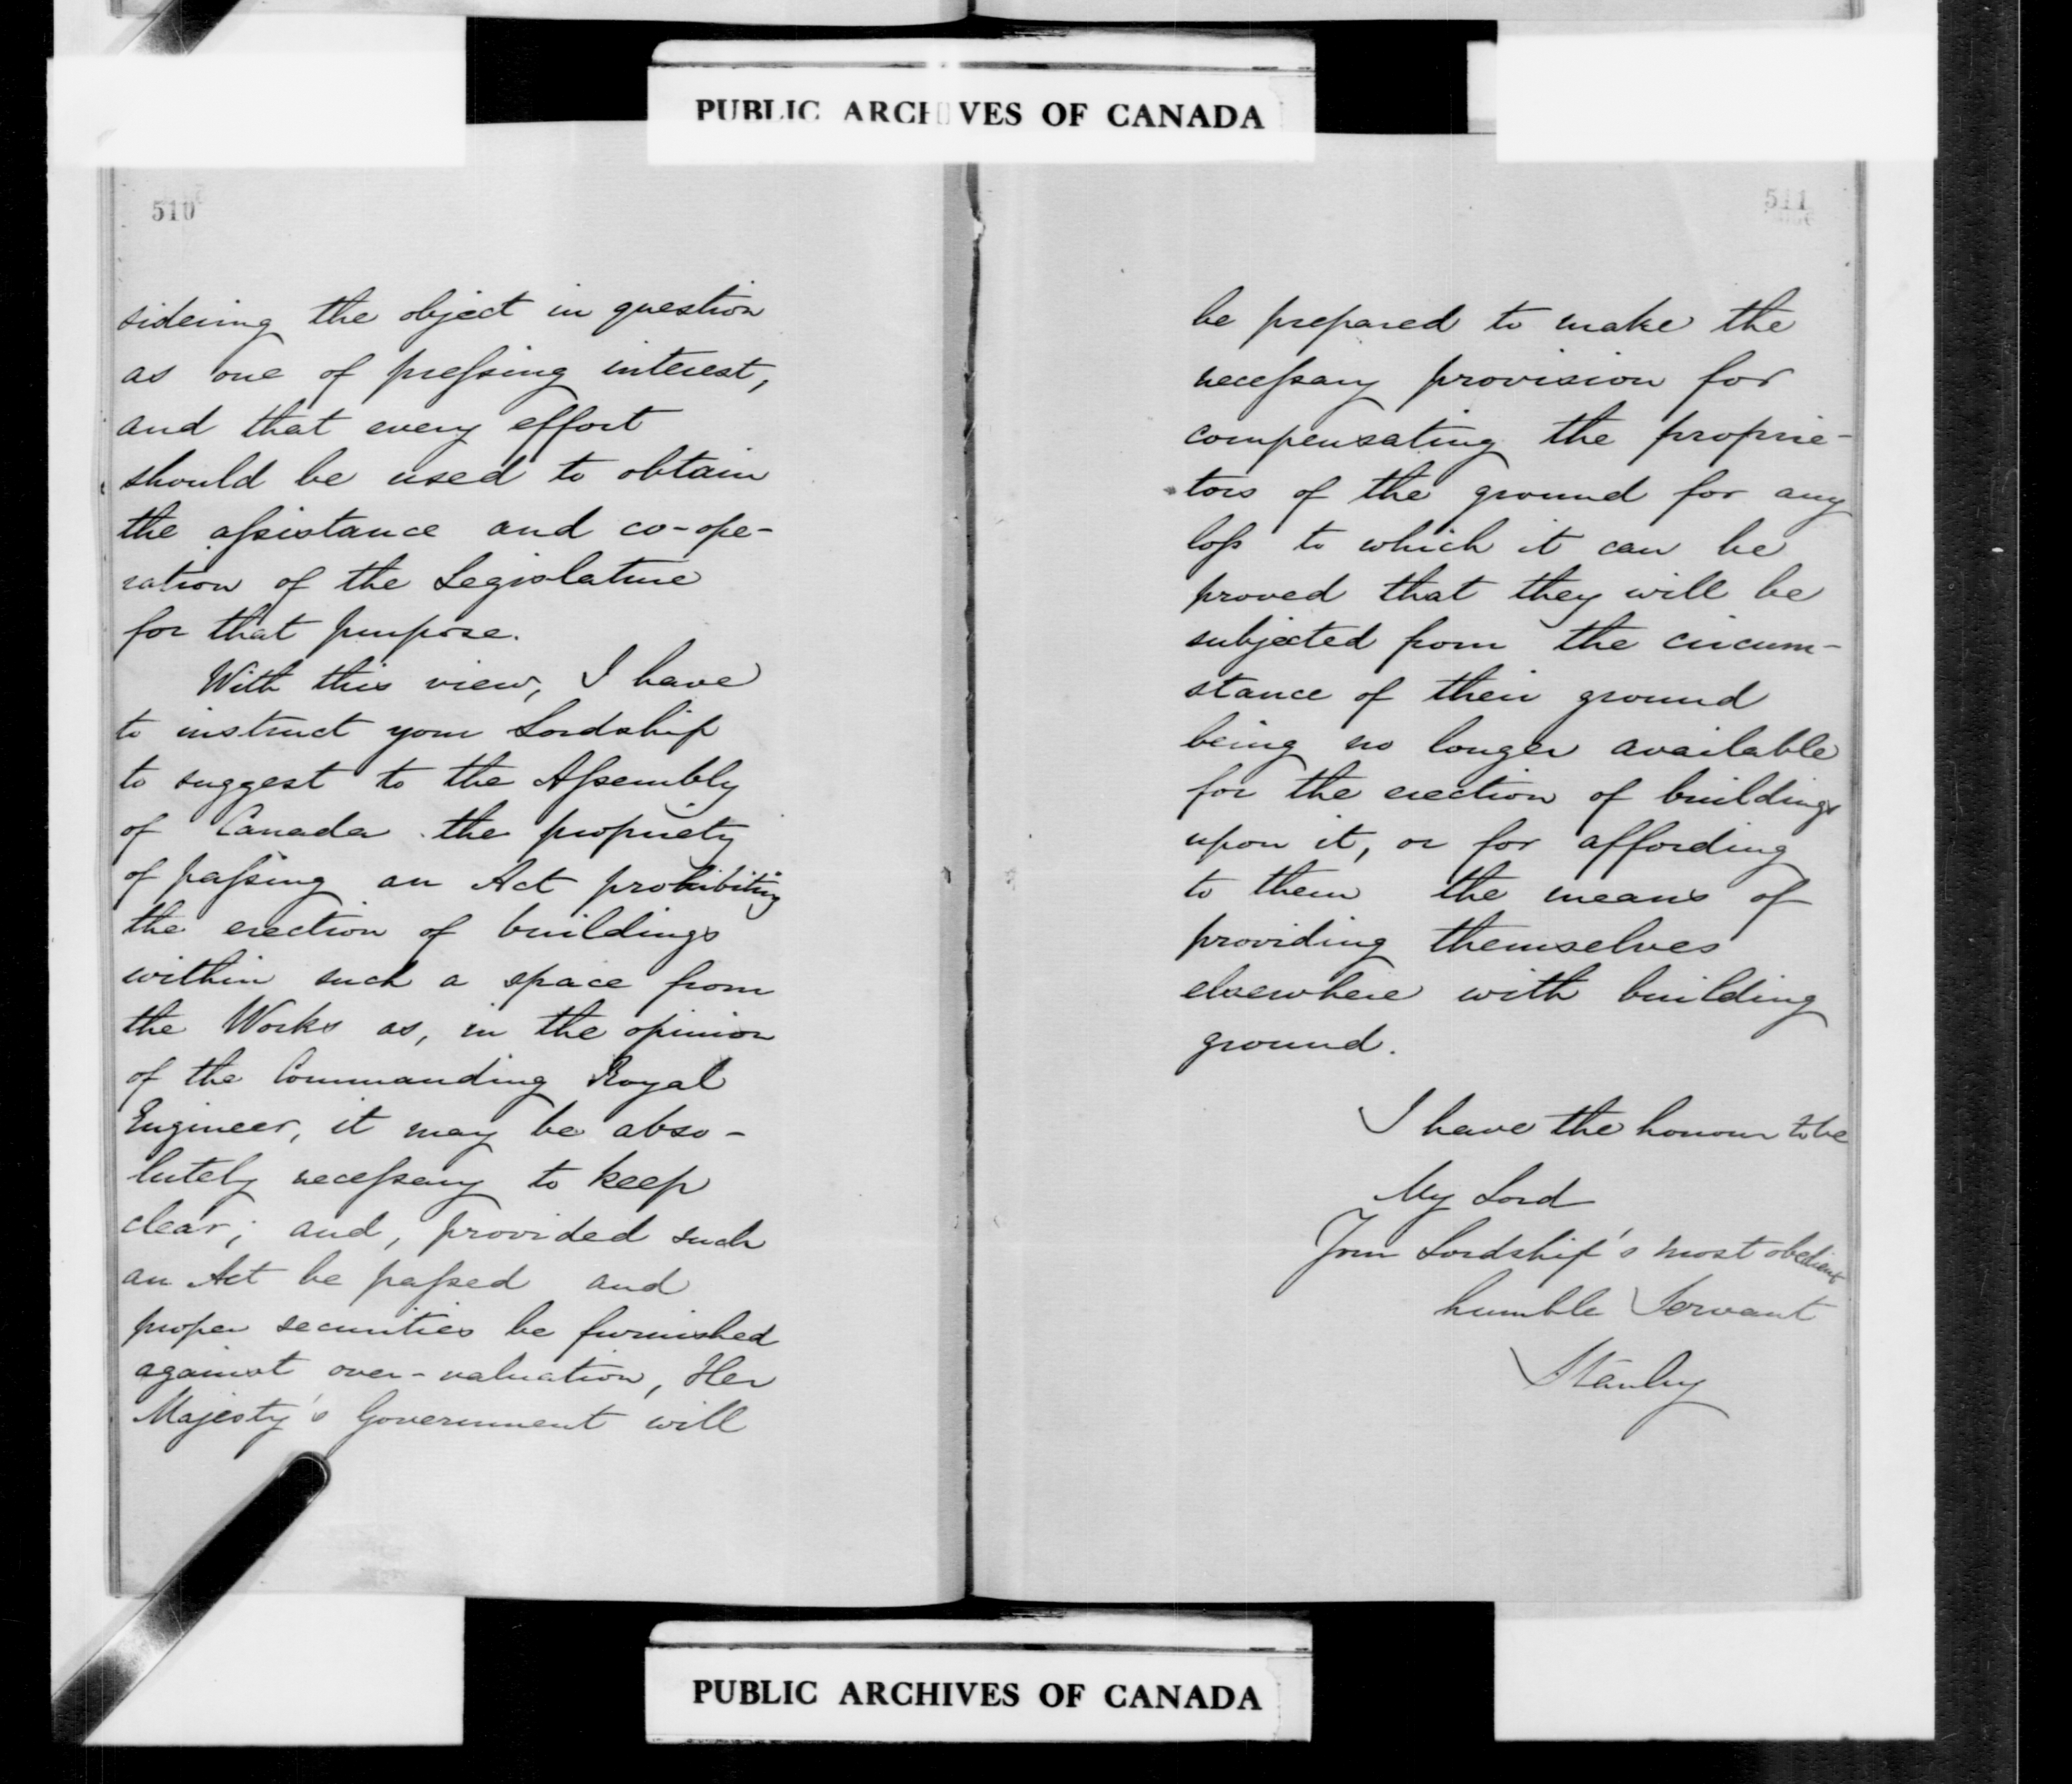 PUBLIC ARCHIVES OF CANADA
510
sidering the object in question
as one of pressing interest,
and that every effort
should be used to obtain
the assistance and co-ope-
ration of the Legislature
for that purpose.
With this view, I have
to instruct your Lordship
to suggest to the Assembly
of Canada the propriety
of passing an Act prohibiting
the erection of buildings
within such a space from
the Works as, in the opinion
of the Commanding Royal
Engineer, it may be abso-
lutely necessary to keep
clear; and, provided such
an Act be passed and
proper securities be furnished
against over-valuation, Her
Majesty's Government will
511
be prepared to make the
necessary provision for
compensating the proprie-
tors of the ground for any
loss to which it can be
proved that they will be
subjected from the circum-
stance of their ground
being no longer available
for the erection of buildings
upon it, or for affording
to them the means of
providing themselves
elsewhere with building
ground.
I have the honour to be
My Lord
Your Lordship's most obedient
humble Servant
Stanley
PUBLIC ARCHIVES OF CANADA